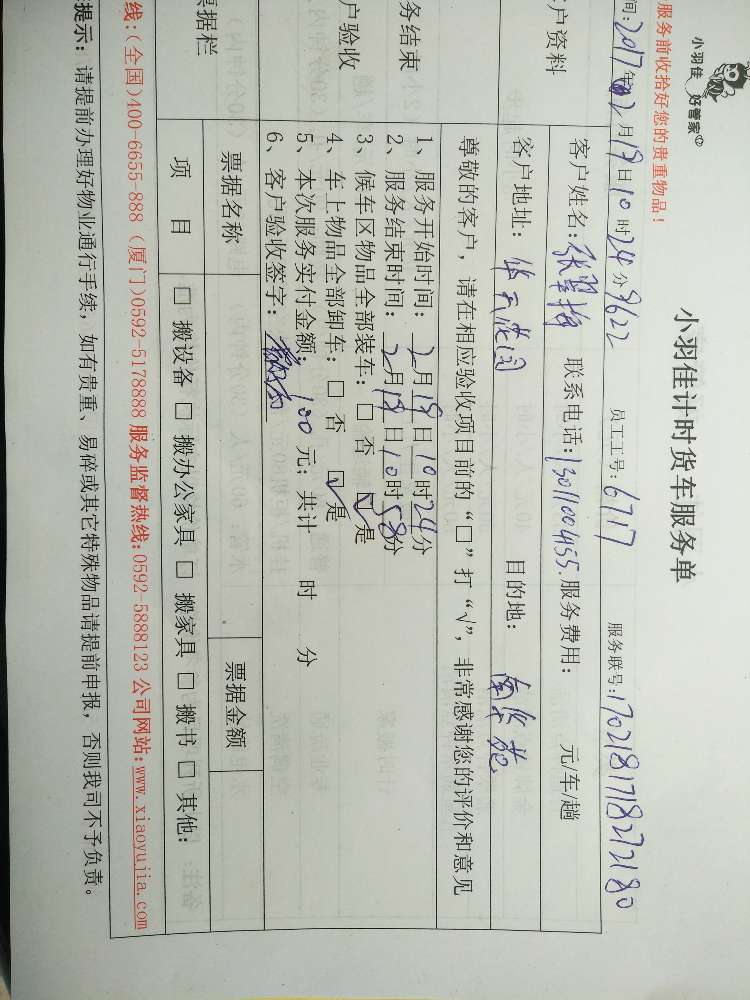 小羽佳
好管家
小羽佳计时货车服务单
服务前收拾好您的贵重物品!
间:2017年02月19日10时24分9622 员工工号:6717 服务联号:1702181718272180
户资料
客户姓名:张翠梅 联系电话:13011001455.服务费用: 元/车/趟
客户地址: 目的地:
务结束
户验收
尊敬的客户,请在相应验收项目前的“□”打“√”,非常感谢您的评价和意见
1、服务开始时间:2月19日10时24分
2、服务结束时间:2月19日10时58分
3、候车区物品全部装车:□ 否 ☑是
4、车上物品全部卸车:□ 否 ☑是
5、本次服务实付金额:100元;共计 时 分
6、客户验收签字:
票据栏
票据名称 票据金额
项 目 □ 搬设备 □ 搬办公家具 □ 搬家具 □ 搬书 □ 其他:
线:(全国)400-6655-888 (厦门)0592-5178888 服务监督热线:0592-5888123 公司网站:www.xiaoyujia.com
提示:请提前办理好物业通行手续,如有贵重、易碎或其它特殊物品请提前申报,否则我司不予负责。